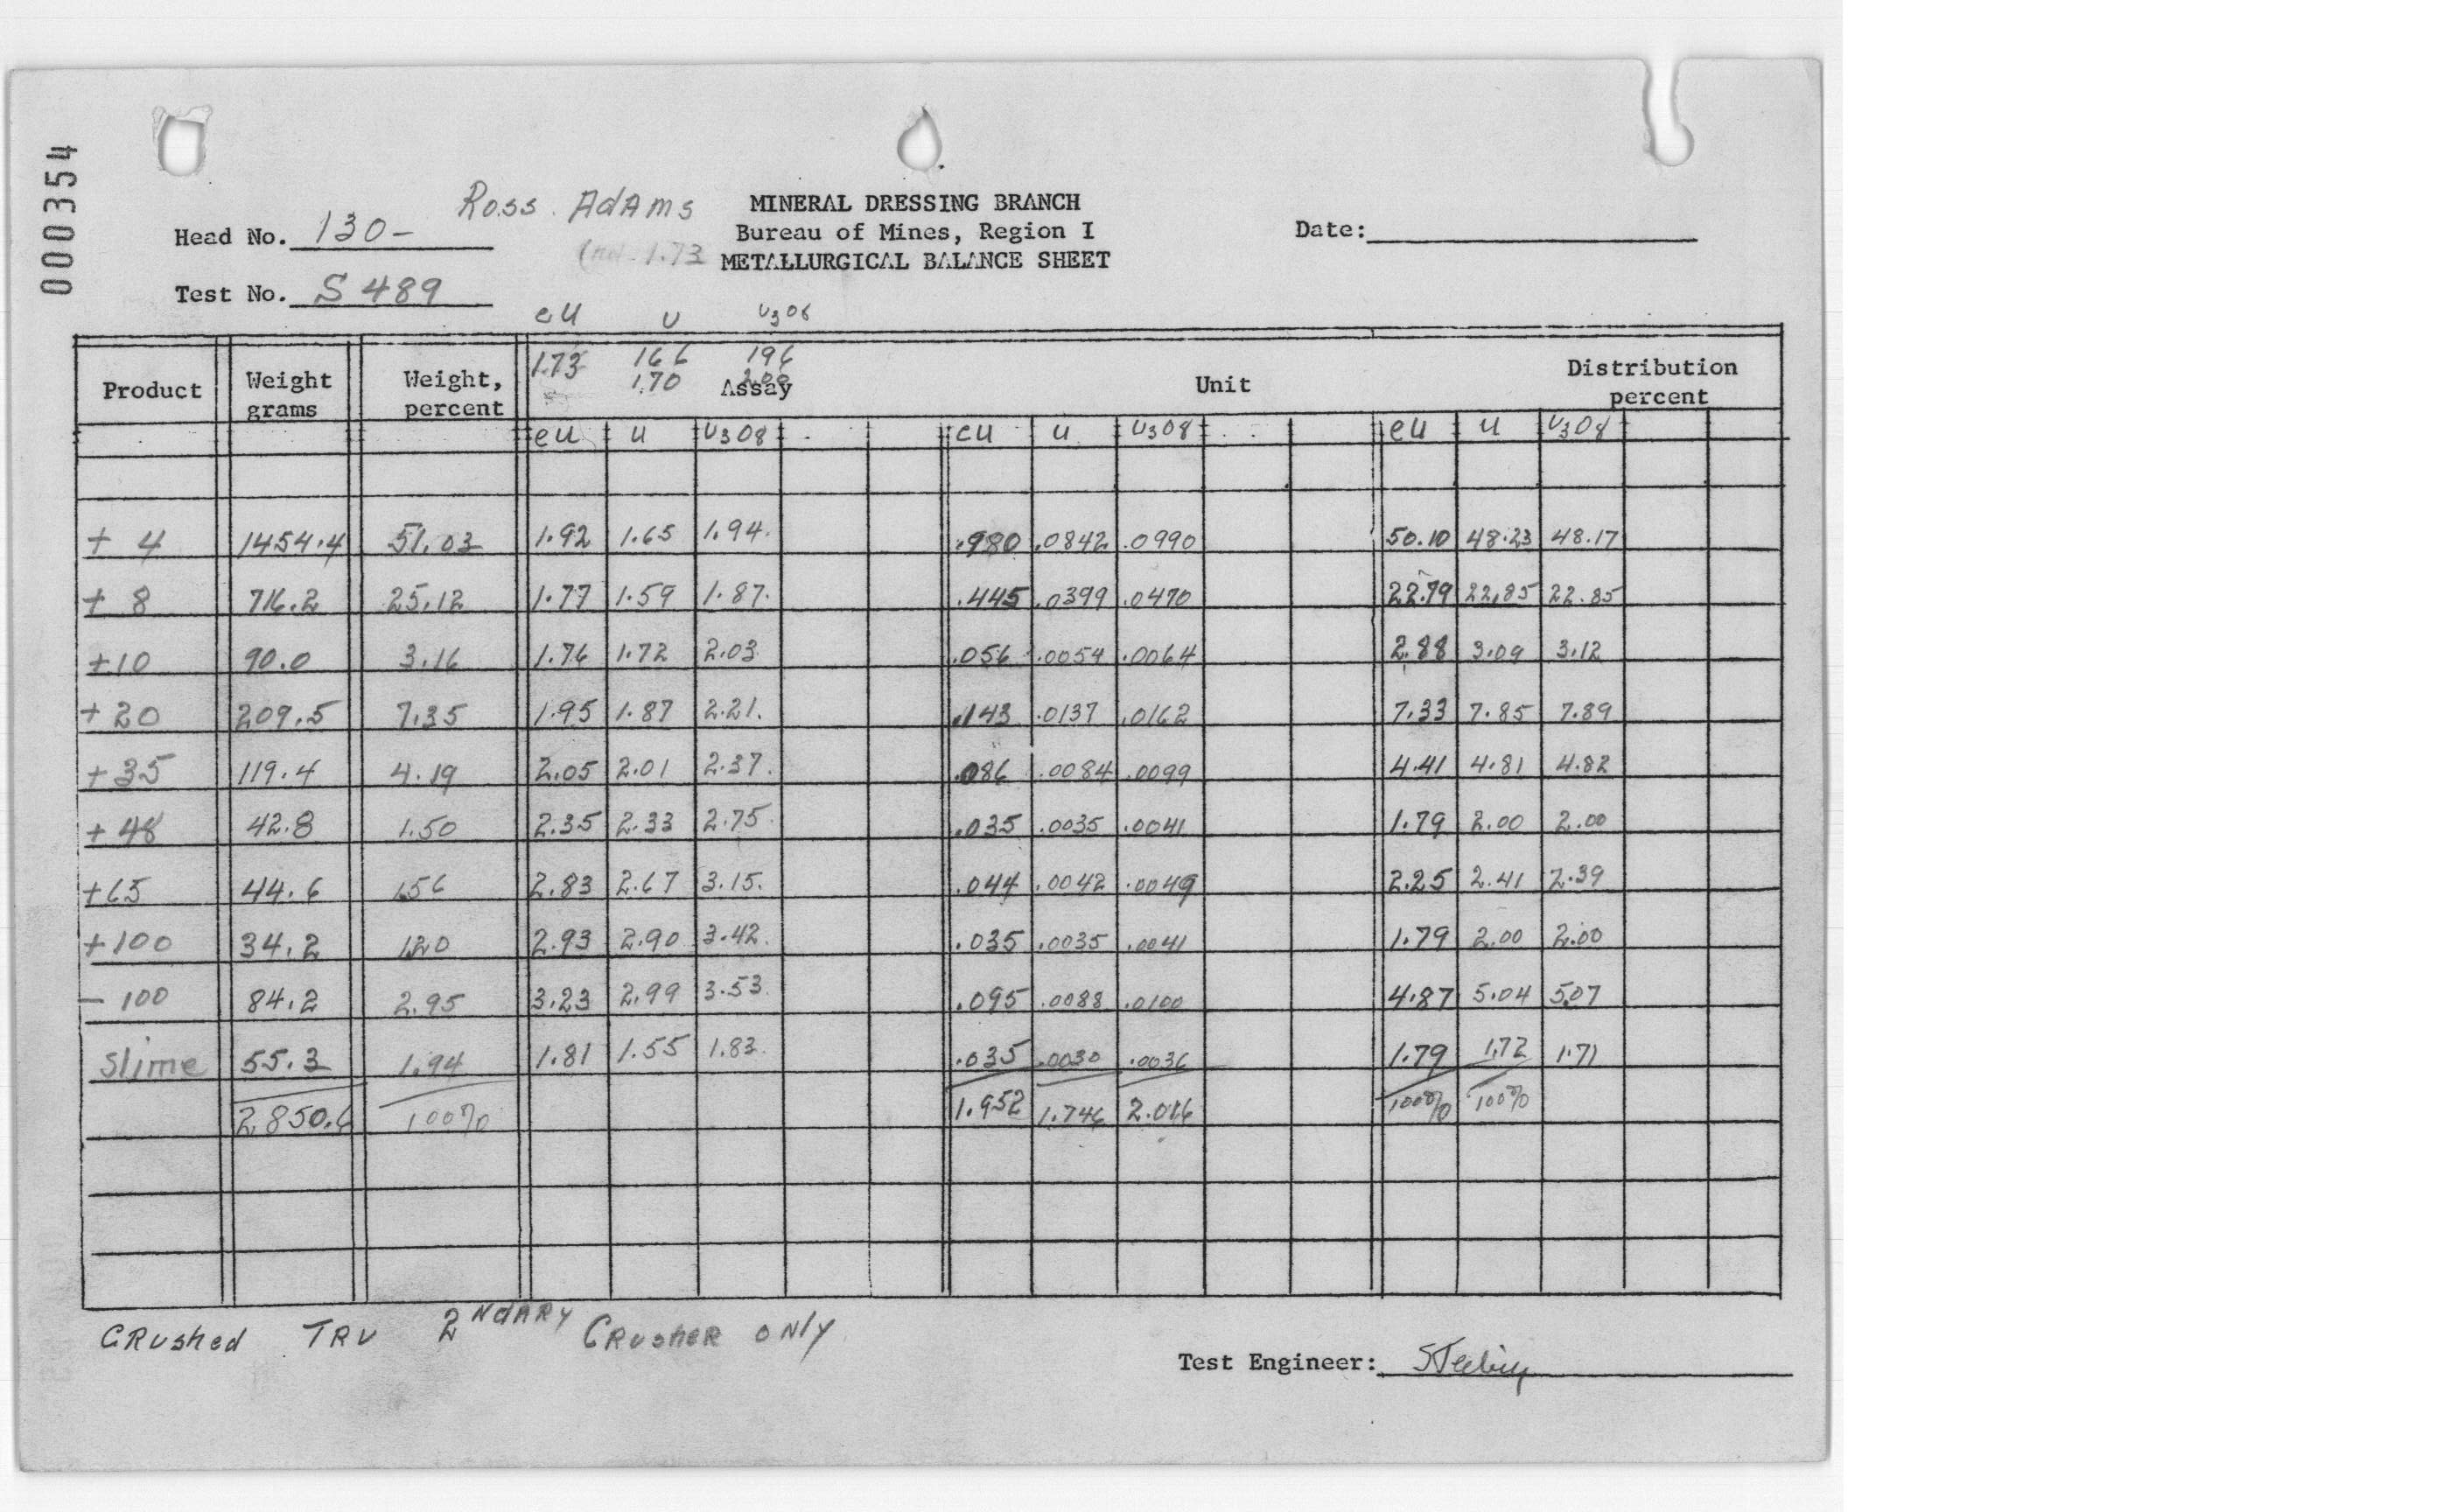 000354
Ross Adams
MINERAL DRESSING BRANCH
Head No. 130-
Bureau of Mines, Region I
Date:
1.73
METALLURGICAL BALANCE SHEET
Test No. S 489
eU U U3O8
1.73 166 196
1.70 200
Product Weight grams Weight, percent Assay Unit Distribution percent
eU U U3O8 eU U U3O8 eU U U3O8
+ 4 1454.4 51.03 1.92 1.65 1.94 .980 .0842 .0990 50.10 48.23 48.17
+ 8 716.2 25.12 1.77 1.59 1.87 .445 .0399 .0470 22.79 22.85 22.85
+10 90.0 3.16 1.76 1.72 2.03 .056 .0054 .0064 2.88 3.09 3.12
+20 209.5 7.35 1.95 1.87 2.21 .143 .0137 .0162 7.33 7.85 7.89
+35 119.4 4.19 2.05 2.01 2.37 .086 .0084 .0099 4.41 4.81 4.82
+48 42.8 1.50 2.35 2.33 2.75 .035 .0035 .0041 1.79 2.00 2.00
+65 44.6 1.56 2.83 2.67 3.15 .044 .0042 .0049 2.25 2.41 2.39
+100 34.2 1.20 2.93 2.90 3.42 .035 .0035 .0041 1.79 2.00 2.00
- 100 84.2 2.95 3.23 2.99 3.53 .095 .0088 .0100 4.87 5.04 5.07
Slime 55.3 1.94 1.81 1.55 1.83 .035 .0030 .0036 1.79 1.72 1.71
2850.6 100% 1.952 1.746 100% 100%
CRushed TRU 2NdARY CRusheR ONly
Test Engineer: